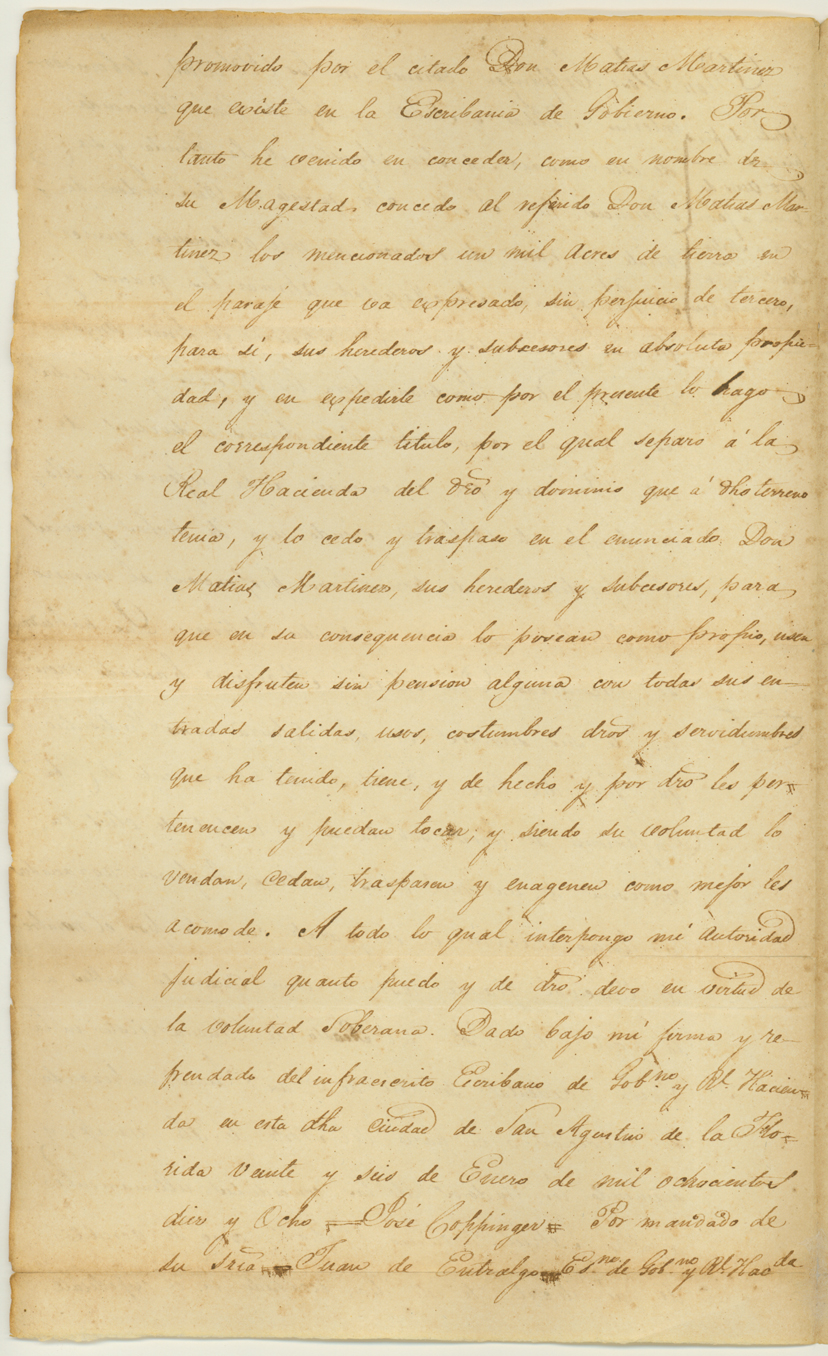 promovido por el citado Don Matias Martinez
que existe en la Escribania de Gobierno. Por
tanto he venido en conceder, como en nombre de
su Magestad, concedo al referido Don Matias Mar-
tinez los mencionados un mil Acres de tierra en
el paraje que va expresado, sin perjuicio de tercero,
para sí, sus herederos y subcesores en absoluta propie-
dad, y en expedirle como por el presente lo hago
el correspondiente titulo, por el qual separo á la
Real Hacienda del dro y dominio que á dho terreno
tenia, y lo cedo y traspaso en el enunciado Don
Matias Martinez, sus herederos y subcesores, para
que en su consequencia lo posean como propio, usen
y disfruten sin pension alguna con todas sus en-
tradas salidas, usos, costumbres dros y servidumbres
que ha tenido, tiene, y de hecho y por dro les per-
tenencen y puedan tocar; y siendo su voluntad lo
vendan, cedan, traspasen y enagenen como mejor les
acomode. A todo lo qual interpongo mi autoridad
judicial quanto puedo y de dro devo en virtud de
la voluntad Soberana. Dado bajo mi firma y re-
frendado del infraescrito Escribano de Gob.no y Rl. Hacien-
da en esta dha Ciudad de San Agustin de la Flo-
rida veinte y seis de Enero de mil ochocientos
diez y Ocho = José Coppinger = Por mandado de
su Sria = Juan de Entralgo = Es.no de Gob.no y Rl. Hacda